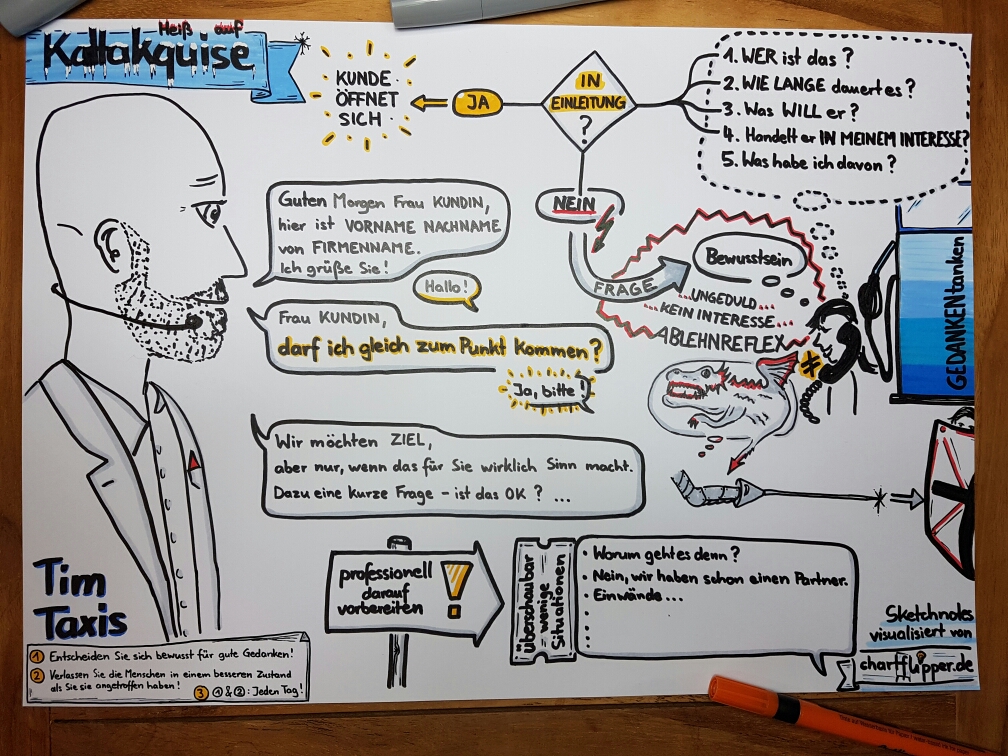 Heiß auf
Kaltakquise
KUNDE
ÖFFNET
SICH
JA
IN
EINLEITUNG
?
1. WER ist das?
2. WIE LANGE dauert es?
3. Was WILL er?
4. Handelt er IN MEINEM INTERESSE?
5. Was habe ich davon?
NEIN
FRAGE
Bewusstsein
...UNGEDULD...
...KEIN INTERESSE...
ABLEHNREFLEX
GEDANKENtanken
Guten Morgen Frau KUNDIN,
hier ist VORNAME NACHNAME
von FIRMENNAME.
Ich grüße Sie!
Hallo!
Frau KUNDIN,
darf ich gleich zum Punkt kommen?
Ja, bitte!
Wir möchten ZIEL,
aber nur, wenn das für Sie wirklich Sinn macht.
Dazu eine kurze Frage - ist das OK? ...
professionell
darauf
vorbereiten
!
Überschaubar
wenige
Situationen
• Worum geht es denn?
• Nein, wir haben schon einen Partner.
• Einwände...
Tim
Taxis
1 Entscheiden Sie sich bewusst für gute Gedanken!
2 Verlassen Sie die Menschen in einem besseren Zustand
als Sie sie angetroffen haben!
3 1 & 2: Jeden Tag!
Sketchnotes
visualisiert von
chartflipper.de